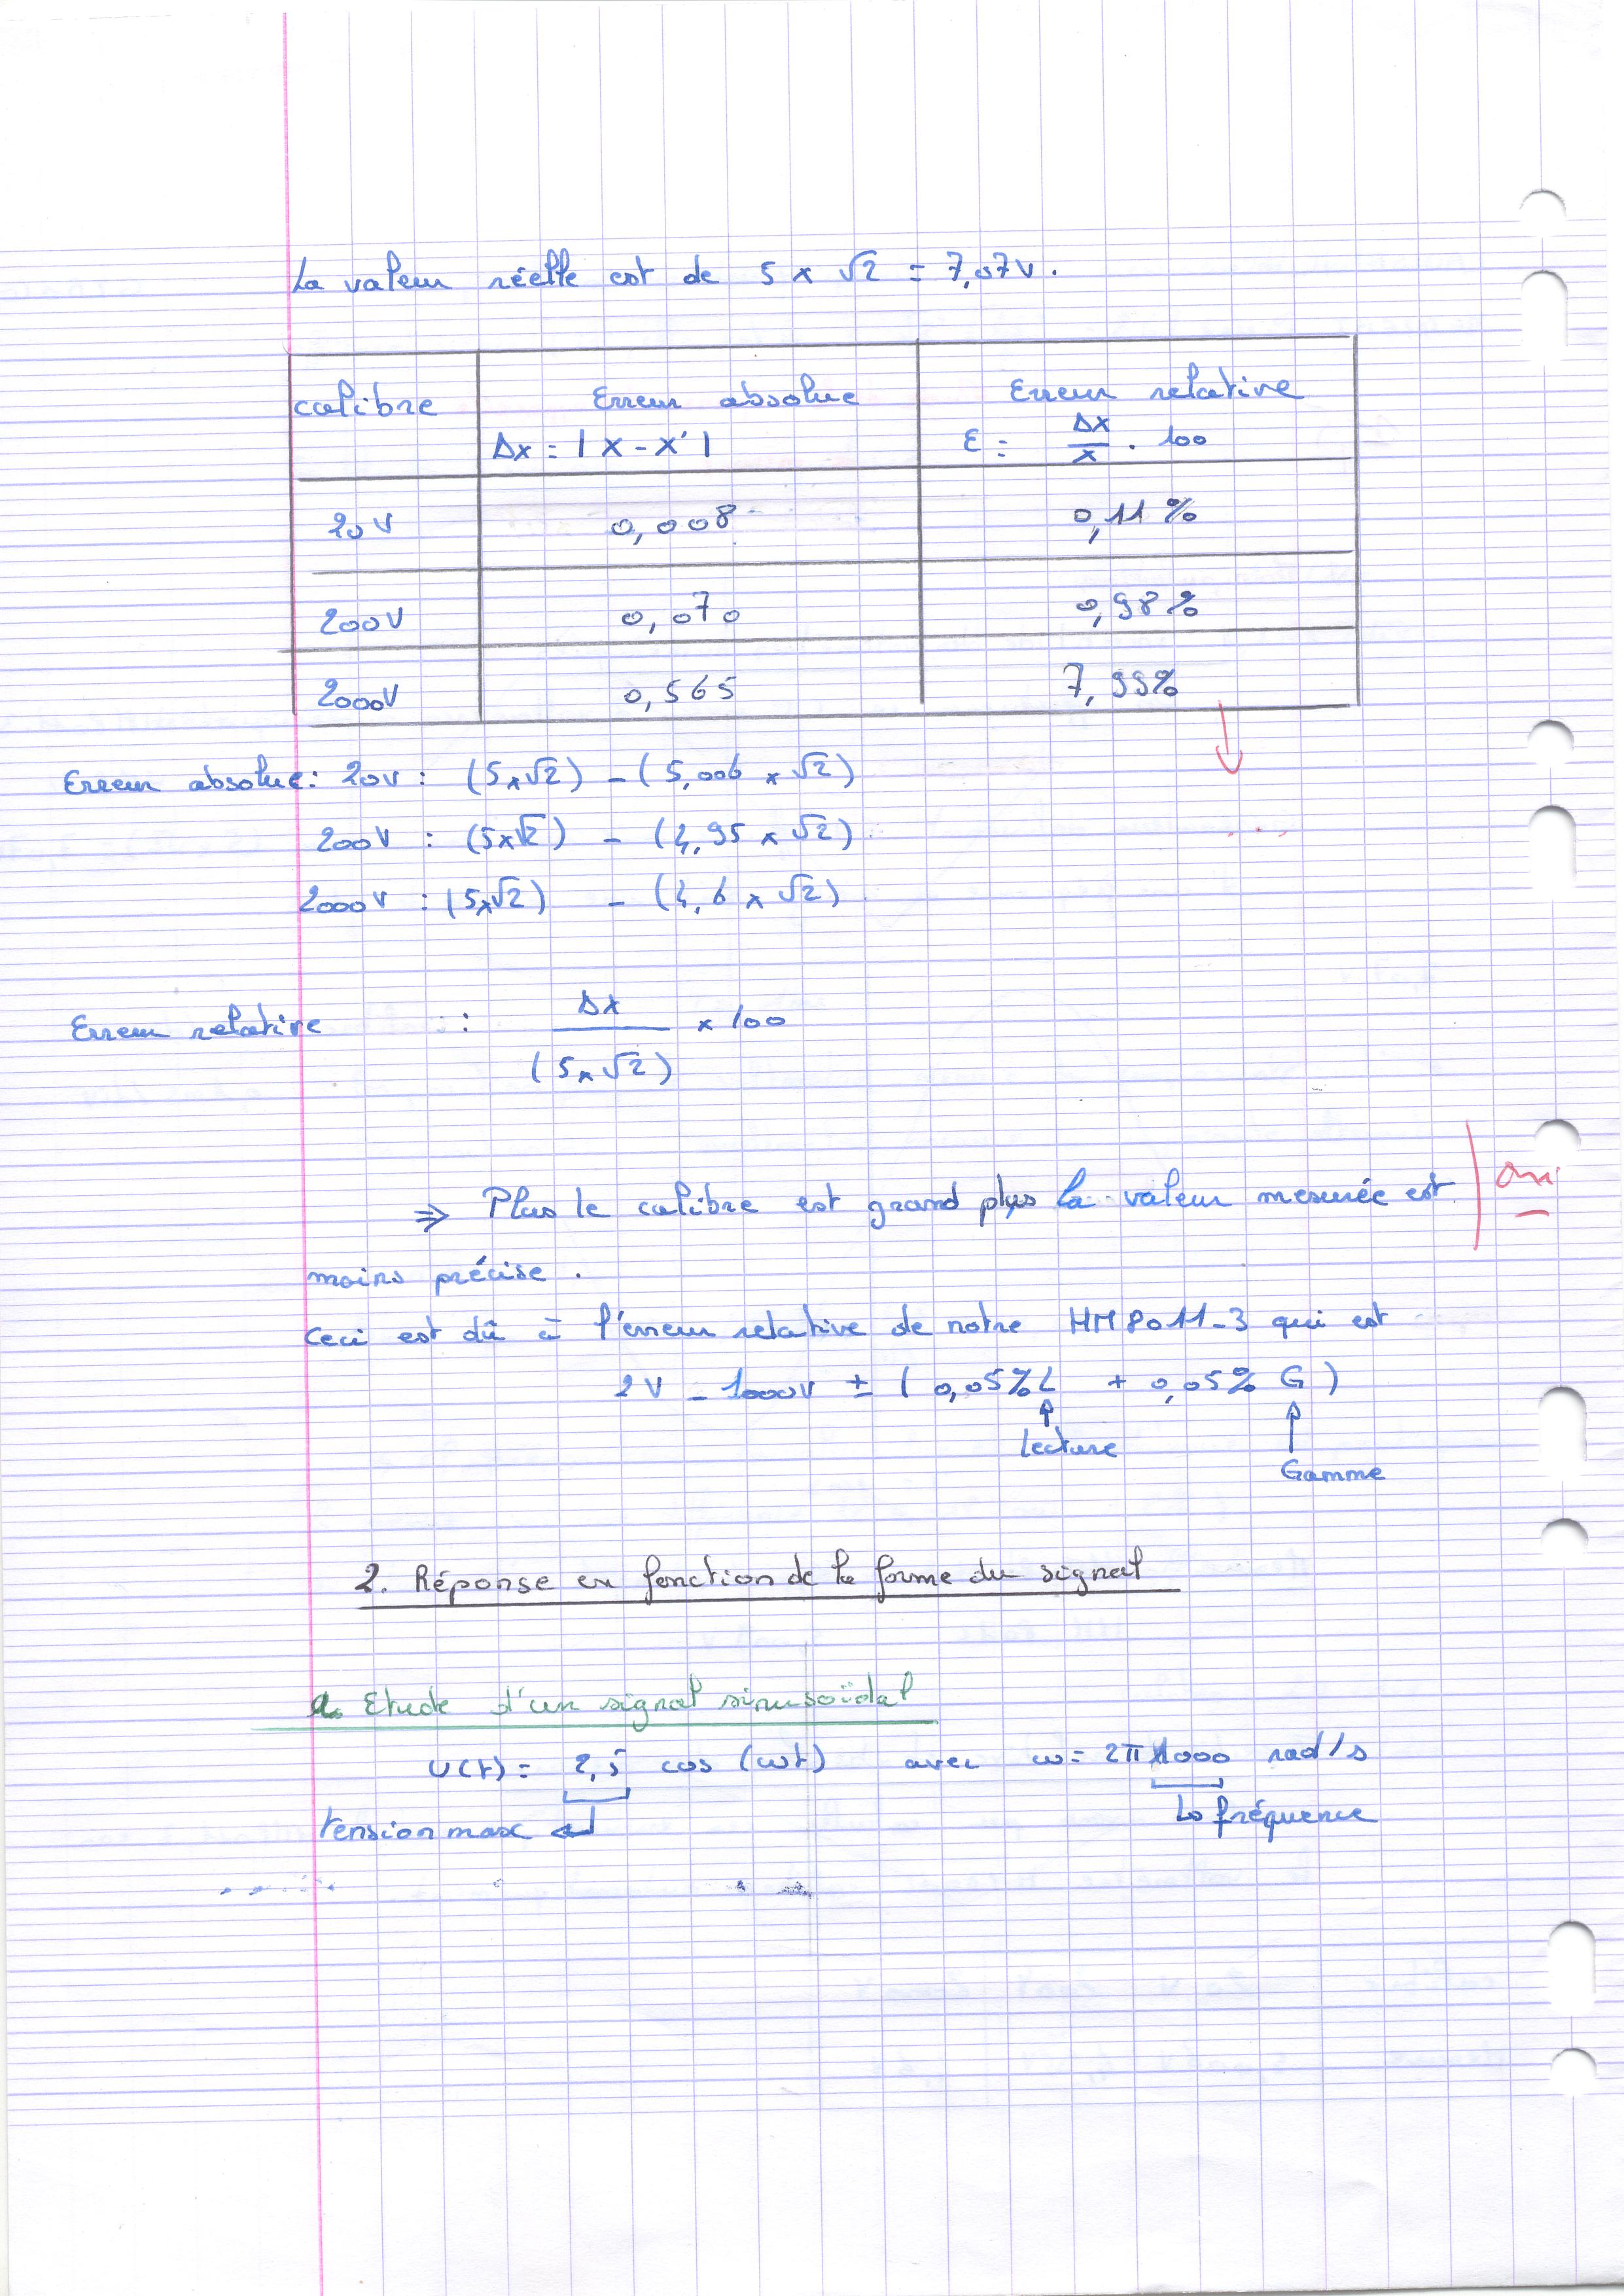 La valeur réelle est de 5 x √2 = 7,07V.
calibre Erreur absolue Erreur relative
Δx = | x - x' | ε = Δx/x . 100
20V 0,008 0,11 %
200V 0,070 0,98 %
2000V 0,565 7,99%
Erreur absolue : 20V : (5x√2) - (5,006 x √2)
200V : (5x√2) - (4,95 x √2)
2000V : (5x√2) - (4,6 x √2)
Erreur relative : Δx / (5x√2) x 100
⇒ Plus le calibre est grand plus la valeur mesurée est
moins précise.
Ceci est dû à l'erreur relative de notre HM8011-3 qui est
2V - 1000V ± ( 0,05%L + 0,05% G )
Lecture
Gamme
2. Réponse en fonction de la forme du signal
a. Etude d'un signal sinusoïdal
U(t) = 2,5 cos (ωt) avec ω = 2π 1000 rad/s
↳ fréquence
tension max